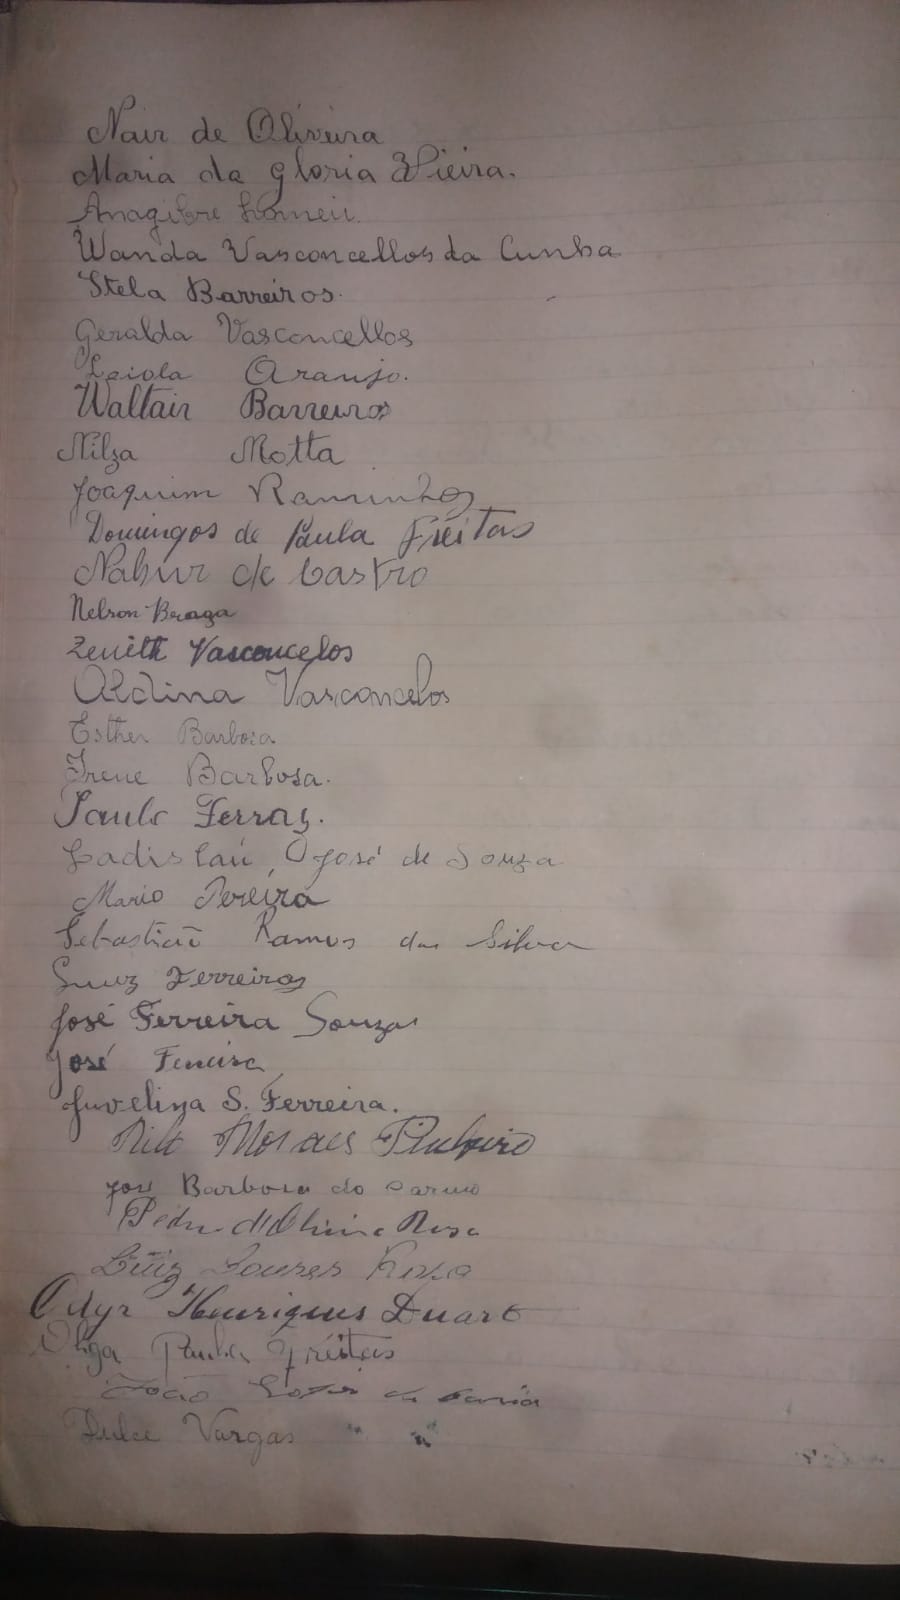 Nair de Oliveira
Maria da Gloria Vieira.
Wanda Vasconcellos da Cunha
Stela Barreiros.
Geralda Vasconcellos
Laiola Araujo.
Waltair Barreiros
Nilza Motta
Joaquim Raminhos
Domingos de Paula Freitas
Nabur de Castro
Nelson Braga
Zenith Vasconcelos
Aldina Vasconcelos
Esther Barbosa
Irene Barbosa.
Paulo Ferraz.
Ladislau José de Souza
Mario Pereira
Sebastião Ramos da Silva
Luiz Ferreira
José Ferreira Souza
José Ferreira
Juvelina S. Ferreira.
Nilo Moraes Pinheiro
José Barbosa do Carmo
Pedro d'Oliveira Rosa
Luiz Soares Rosa
Odyr Henriques Duarte
Olga Paula Freitas
João de Faria
Dulce Vargas " "